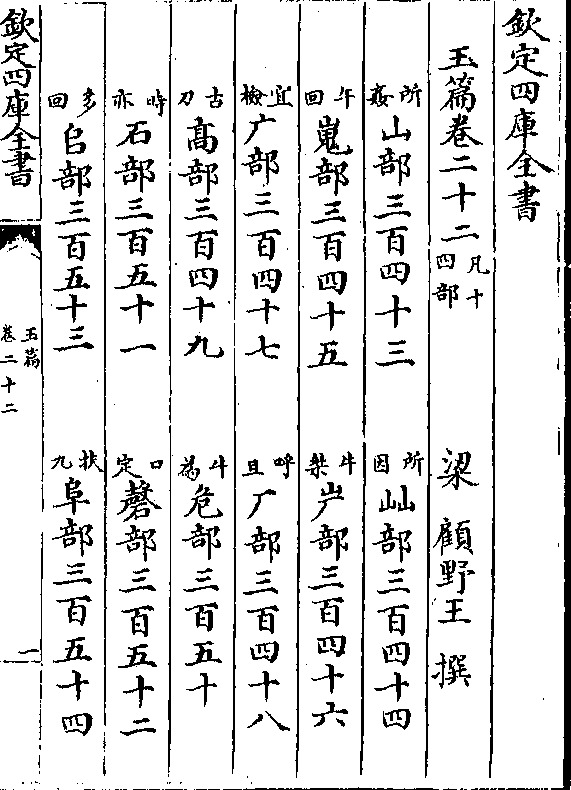 欽定四庫全書
玉篇卷二十二 凡十四部 梁 顧野王 撰
所姦 山部三百四十三 所因 屾部三百四十四
午回 嵬部三百四十五 牛桀 屵部三百四十六
宜檢 广部三百四十七 呼旦 厂部三百四十八
古刀 髙部三百四十九 牛為 危部三百五十
時亦 石部三百五十一 口定 磬部三百五十二
多回 𠂤部三百五十三 扶九 阜部三百五十四
欽定四庫全書 玉篇 卷二十二 一